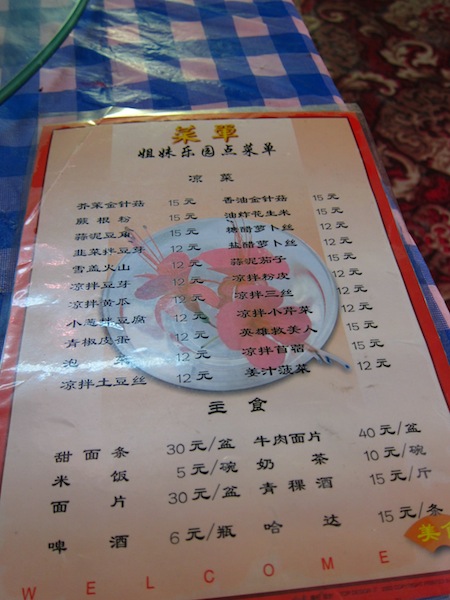 菜單
姐妹乐园点菜单
凉菜
芥菜金针菇 15元 香油金针菇 15元
蕨根粉 15元 油炸花生米 15元
蒜泥豆角 15元 糖醋萝卜丝 12元
韭菜拌豆芽 12元 盐醋萝卜丝 12元
雪盖火山 12元 蒜泥茄子 12元
凉拌豆芽 12元 凉拌粉皮 12元
凉拌黄瓜 12元 凉拌三丝 12元
小葱拌豆腐 12元 凉拌小芹菜 12元
青椒皮蛋 12元 英雄救美人 12元
泡菜 12元 凉拌苜蓿 15元
凉拌土豆丝 12元 姜汁菠菜 12元
主食
甜面条 30元/盆 牛肉面片 40元/盆
米饭 5元/碗 奶茶 10元/碗
面片 30元/盆 青稞酒 15元/斤
啤酒 6元/瓶 哈达 15元/条
美食
WELCOME